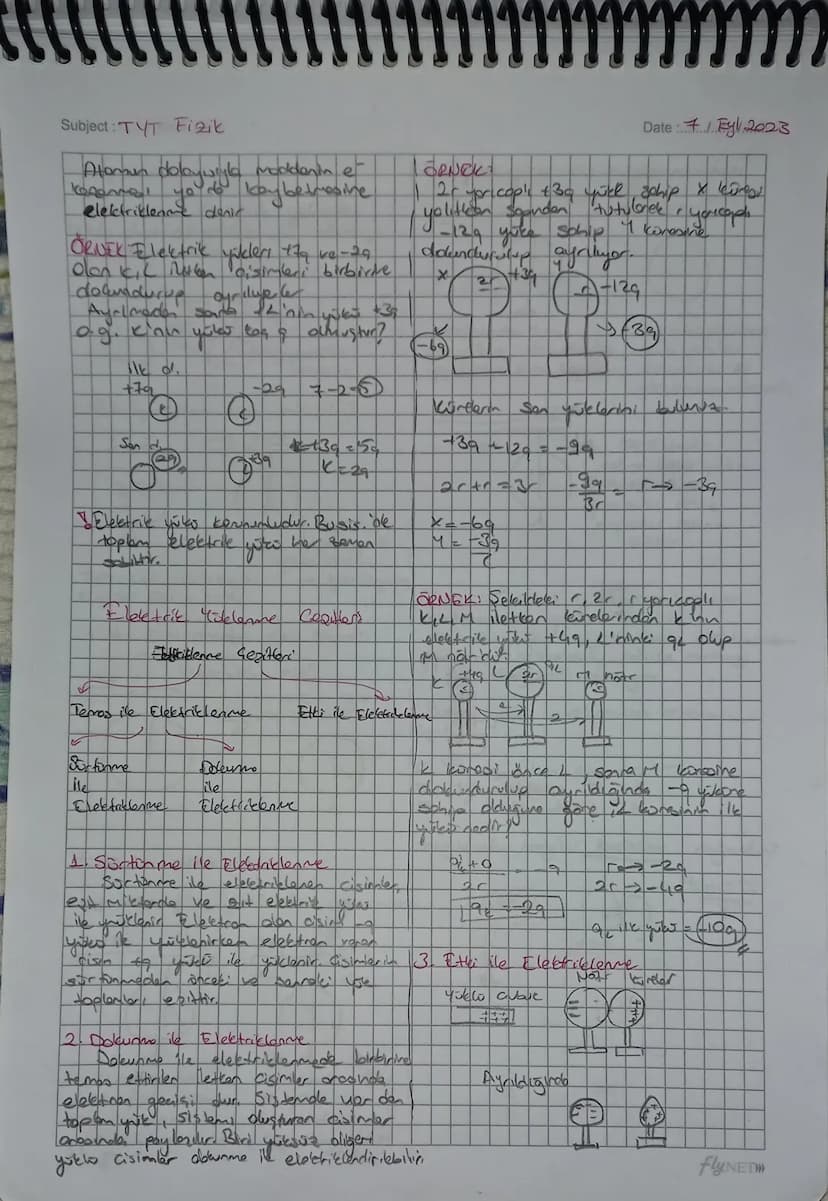 Subject: TYT Fizik
Date: 7 / Eyl 2023
Atomun dolayısıyla maddenin e-
kazanması ya da kaybetmesine
elektriklenme denir
ÖRNEK Elektrik yükleri +7q ve -2q
olan K, L iletken cisimleri birbirine
dokundurup ayrılıyorlar
Ayrılmadan sonra L'nin yükü +3q
o.g. K'nın yükü kaç q olmuştur?
ilk d.
+7q
-2q 7-2=5
Son d.
2q
+3q
K+3q=5q
K=2q
! Elektrik yükü korunumludur. Bu sis. de
toplam elektrik yükü her zaman
sabittir.
Elektrik Yüklenme Çeşitleri
Elektriklenme Çeşitleri
Temas ile Elektriklenme
Etki ile Elektriklenme
Sürtünme
ile
Elektriklenme
Dokunma
ile
Elektriklenme
1. Sürtünme ile Elektriklenme
Sürtünme ile elektriklenen cisimler,
eşit miktarda ve zıt elektrik yükü
ile yüklenir. Elektron alan cisim -q
yükü ile yüklenirken elektron veren
cisim +q yükü ile yüklenir. Cisimlerin
sürtünmeden önceki ve sonraki yük
toplamları eşittir.
2. Dokunma ile Elektriklenme
Dokunma ile elektriklenmede birbirine
temas ettirilen iletken cisimler arasında
elektron geçişi olur. Sistemde var olan
toplam yük, sistemi oluşturan cisimler
arasında paylaşılır. Biri yüksüz diğeri
yüklü cisimler dokunma ile elektriklendirilebilir.
ÖRNEK:
2r yarıçaplı +3q yüke sahip X küresi
yalıtkan sapından tutularak r yarıçaplı
-12q yüke sahip Y küresine
dokundurulup ayrılıyor.
X
2r
+3q
Y
r
-12q
-6q
-3q
Kürelerin son yüklerini bulunuz.
+3q -12q = -9q
2r+r=3r
-9q
3r
= r → -3q
X=-6q
Y=-3q
ÖRNEK: Şekildeki r, 2r, r yarıçaplı
K, L, M iletken kürelerinden K'nın
elektrik yükü +4q, L'ninki qL olup
M nötrdür.
K
+4q
L
2r
qL
M nötr
r
1
2
K küresi önce L, sonra M küresine
dokundurulup ayrıldığında -q yüküne
sahip olduğuna göre L küresinin ilk
yükü nedir?
2r
r → -2q
2r → -4q
qL ilk yükü = -10q
3. Etki ile Elektriklenme
Nötr küreler
yüklü çubuk
+++
Ayrıldığında
flyNET